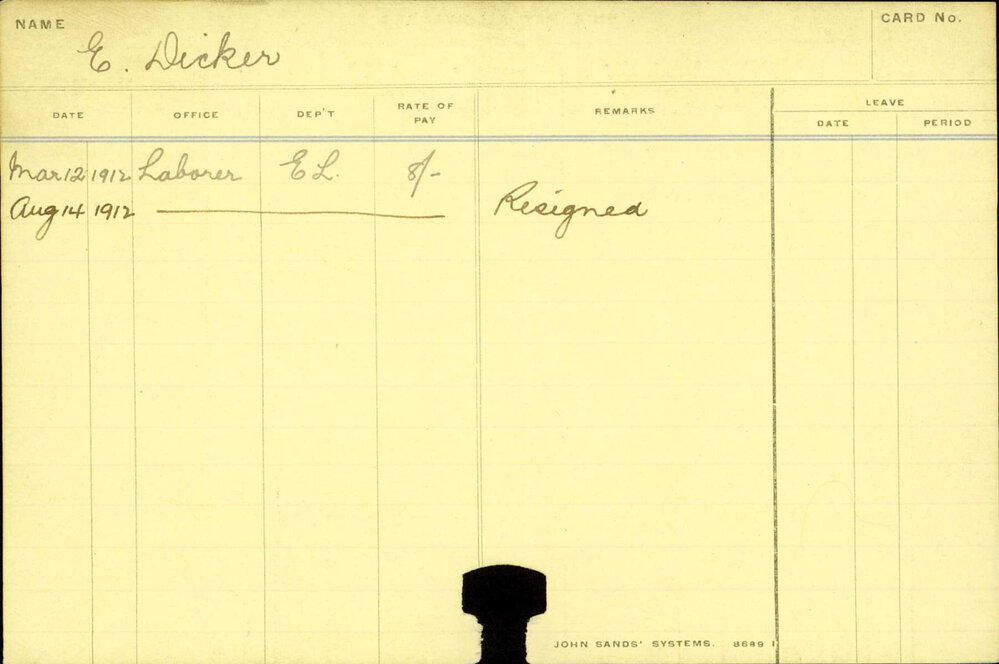 NAME
E. Dicker
CARD No.
DATE OFFICE DEP'T RATE OF PAY REMARKS LEAVE
DATE PERIOD
Mar 12 1912 Laborer E L. 8/-
Aug 14 1912 Resigned
JOHN SANDS' SYSTEMS. 8689 1